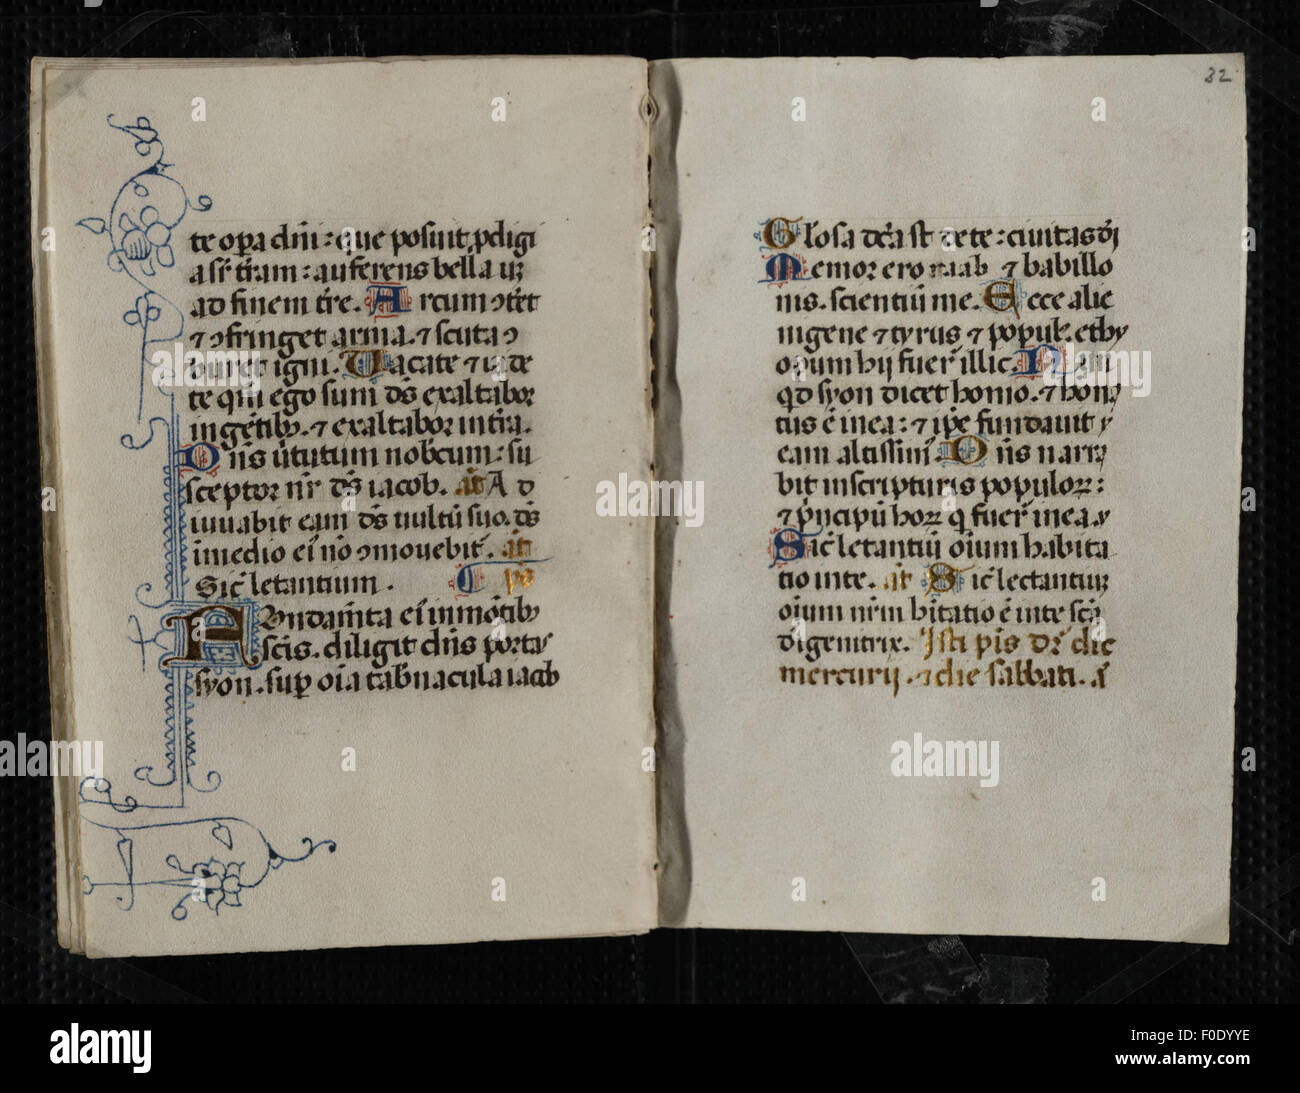 te opa dni: que posuit pdigi
a sr tram: auferens bella usq
ad finem tre. Arcum ↄtet
⁊ ↄfringet arma. ⁊ scuta ↄ
buret igni. Vacate ⁊ uide
te qm ego sum ds exaltabor
in gentib ⁊ exaltabor in tra.
Dns ututum nobcum: su
sceptor nr ds iacob. at Ad
iuuabit eam ds uultu suo. ds
i medio ei no ↄmouebit. an
Sic letantium. ps
Fundamta ei in motib
scis. diligit dns portas
syon. sup oia tabnacula iacob
32
Glosa dca st de te: ciuitas di
Memor ero raab ⁊ babillo
nis. scientiu me. Ecce alie
nigene ⁊ tyrus ⁊ popul. ethy
opum hij fuer illic. Nun
qd syon dicet homo. ⁊ homo
tus e in ea: ⁊ ipe fundauit
eam altissim. Dns narra
bit in scripturis populoꝝ:
⁊ pncipu hoꝝ q fuer in ea.
Sic letantiu oium habita
tio in te. at Sic lectantium
oium nrm bitatio e in te sca
di genitrix. Isti pis dr die
mercurij. ⁊ die sabbati.
alamy
a
alamy stock photo
alamy
Image ID: F0DYYE
www.alamy.com